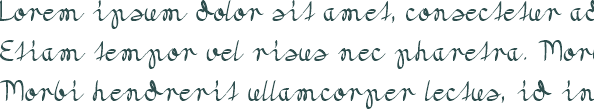 Lorem ipsum dolor sit amet, consectetur ad
Etiam tempor vel risus nec pharetra. Morb
Morbi hendrerit ullamcorper lectus, id in